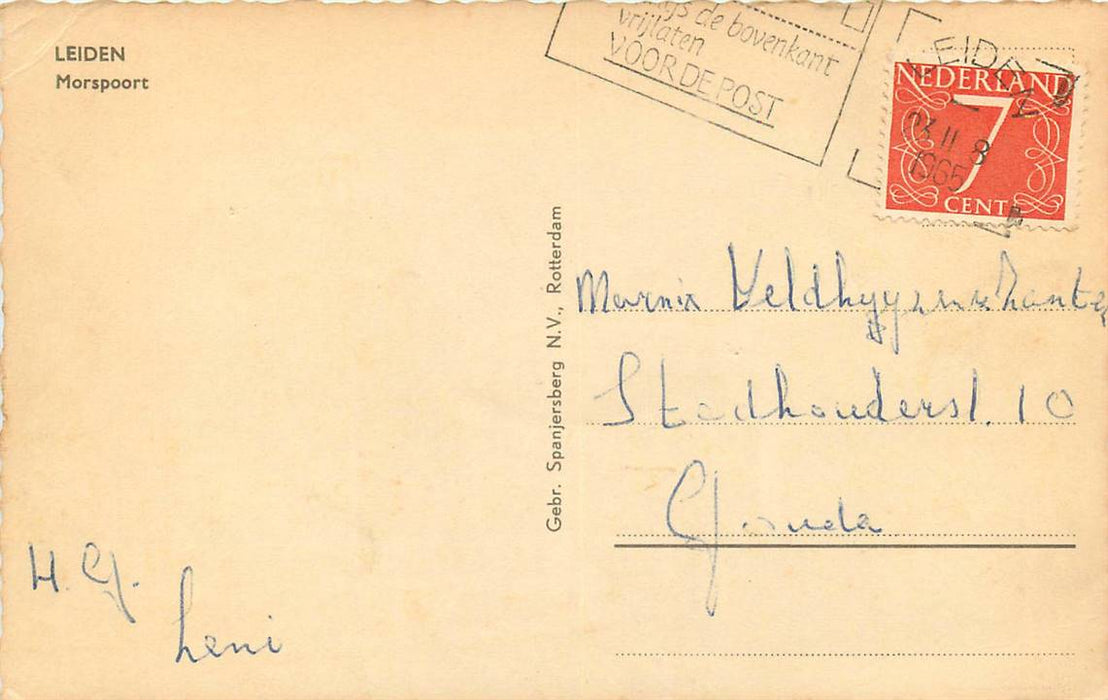 LEIDEN
Morspoort
de bovenkant
vrijlaten
VOOR DE POST
LEIDEN
II 8
1965
NEDERLAND
7
CENT
Gebr. Spanjersberg N.V., Rotterdam
Marnix
Stadhoudersl. 10
Gouda
H. G.
Leni